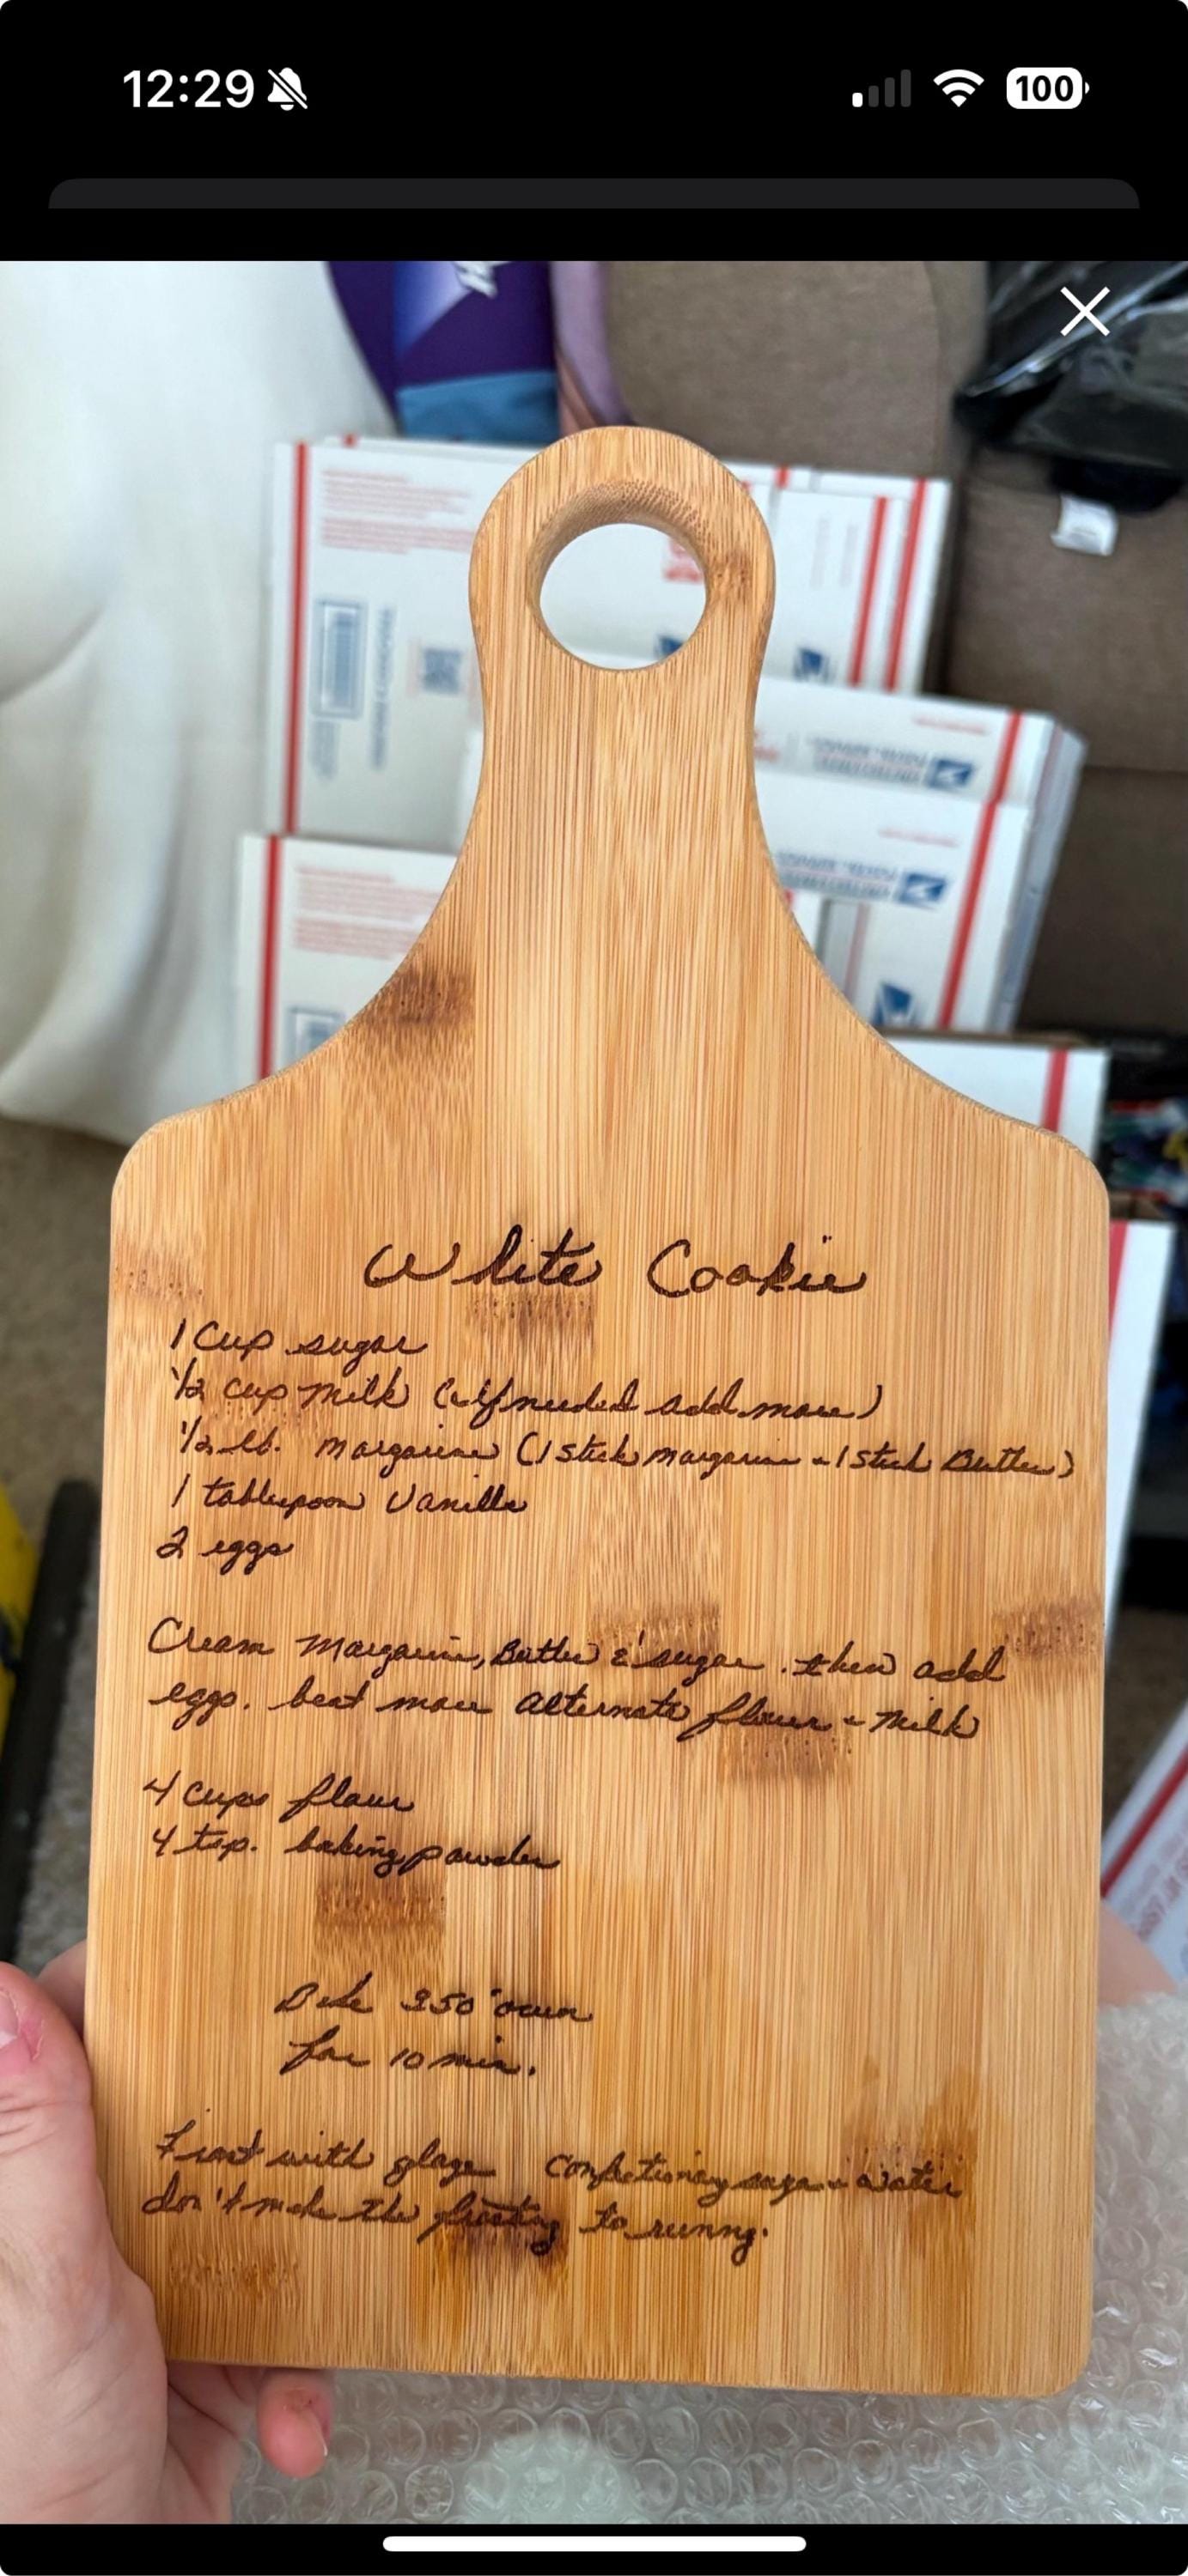 12:29
100
White Cookie
1 Cup sugar
1/2 cup milk (if needed add more)
1/2 lb. margarine (1 stick margarine & 1 stick Butter)
1 tablespoon Vanilla
2 eggs
Cream Margarine, Butter & sugar. then add
eggs. beat more alternate flour & milk
4 cups flour
4 tsp. baking powder
Bake 350° oven
for 10 min.
Frost with glaze Confectionary sugar & water
don't make the frosting to runny.